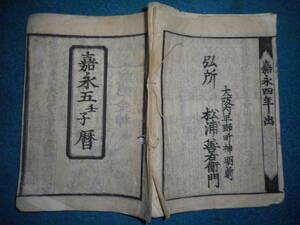 嘉永四年出
大坂内平野町神明前
弘所 松浦善右衛門
嘉永五壬子暦